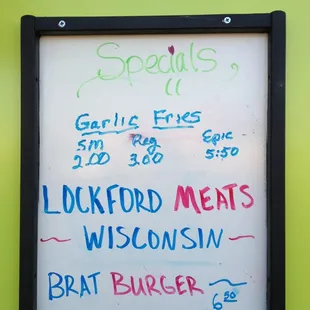 Specials
Garlic Fries
Sm Reg Epic
2.00 3.00 5:50
LOCKFORD MEATS
~ WISCONSIN ~
BRAT BURGER ~ 6.50